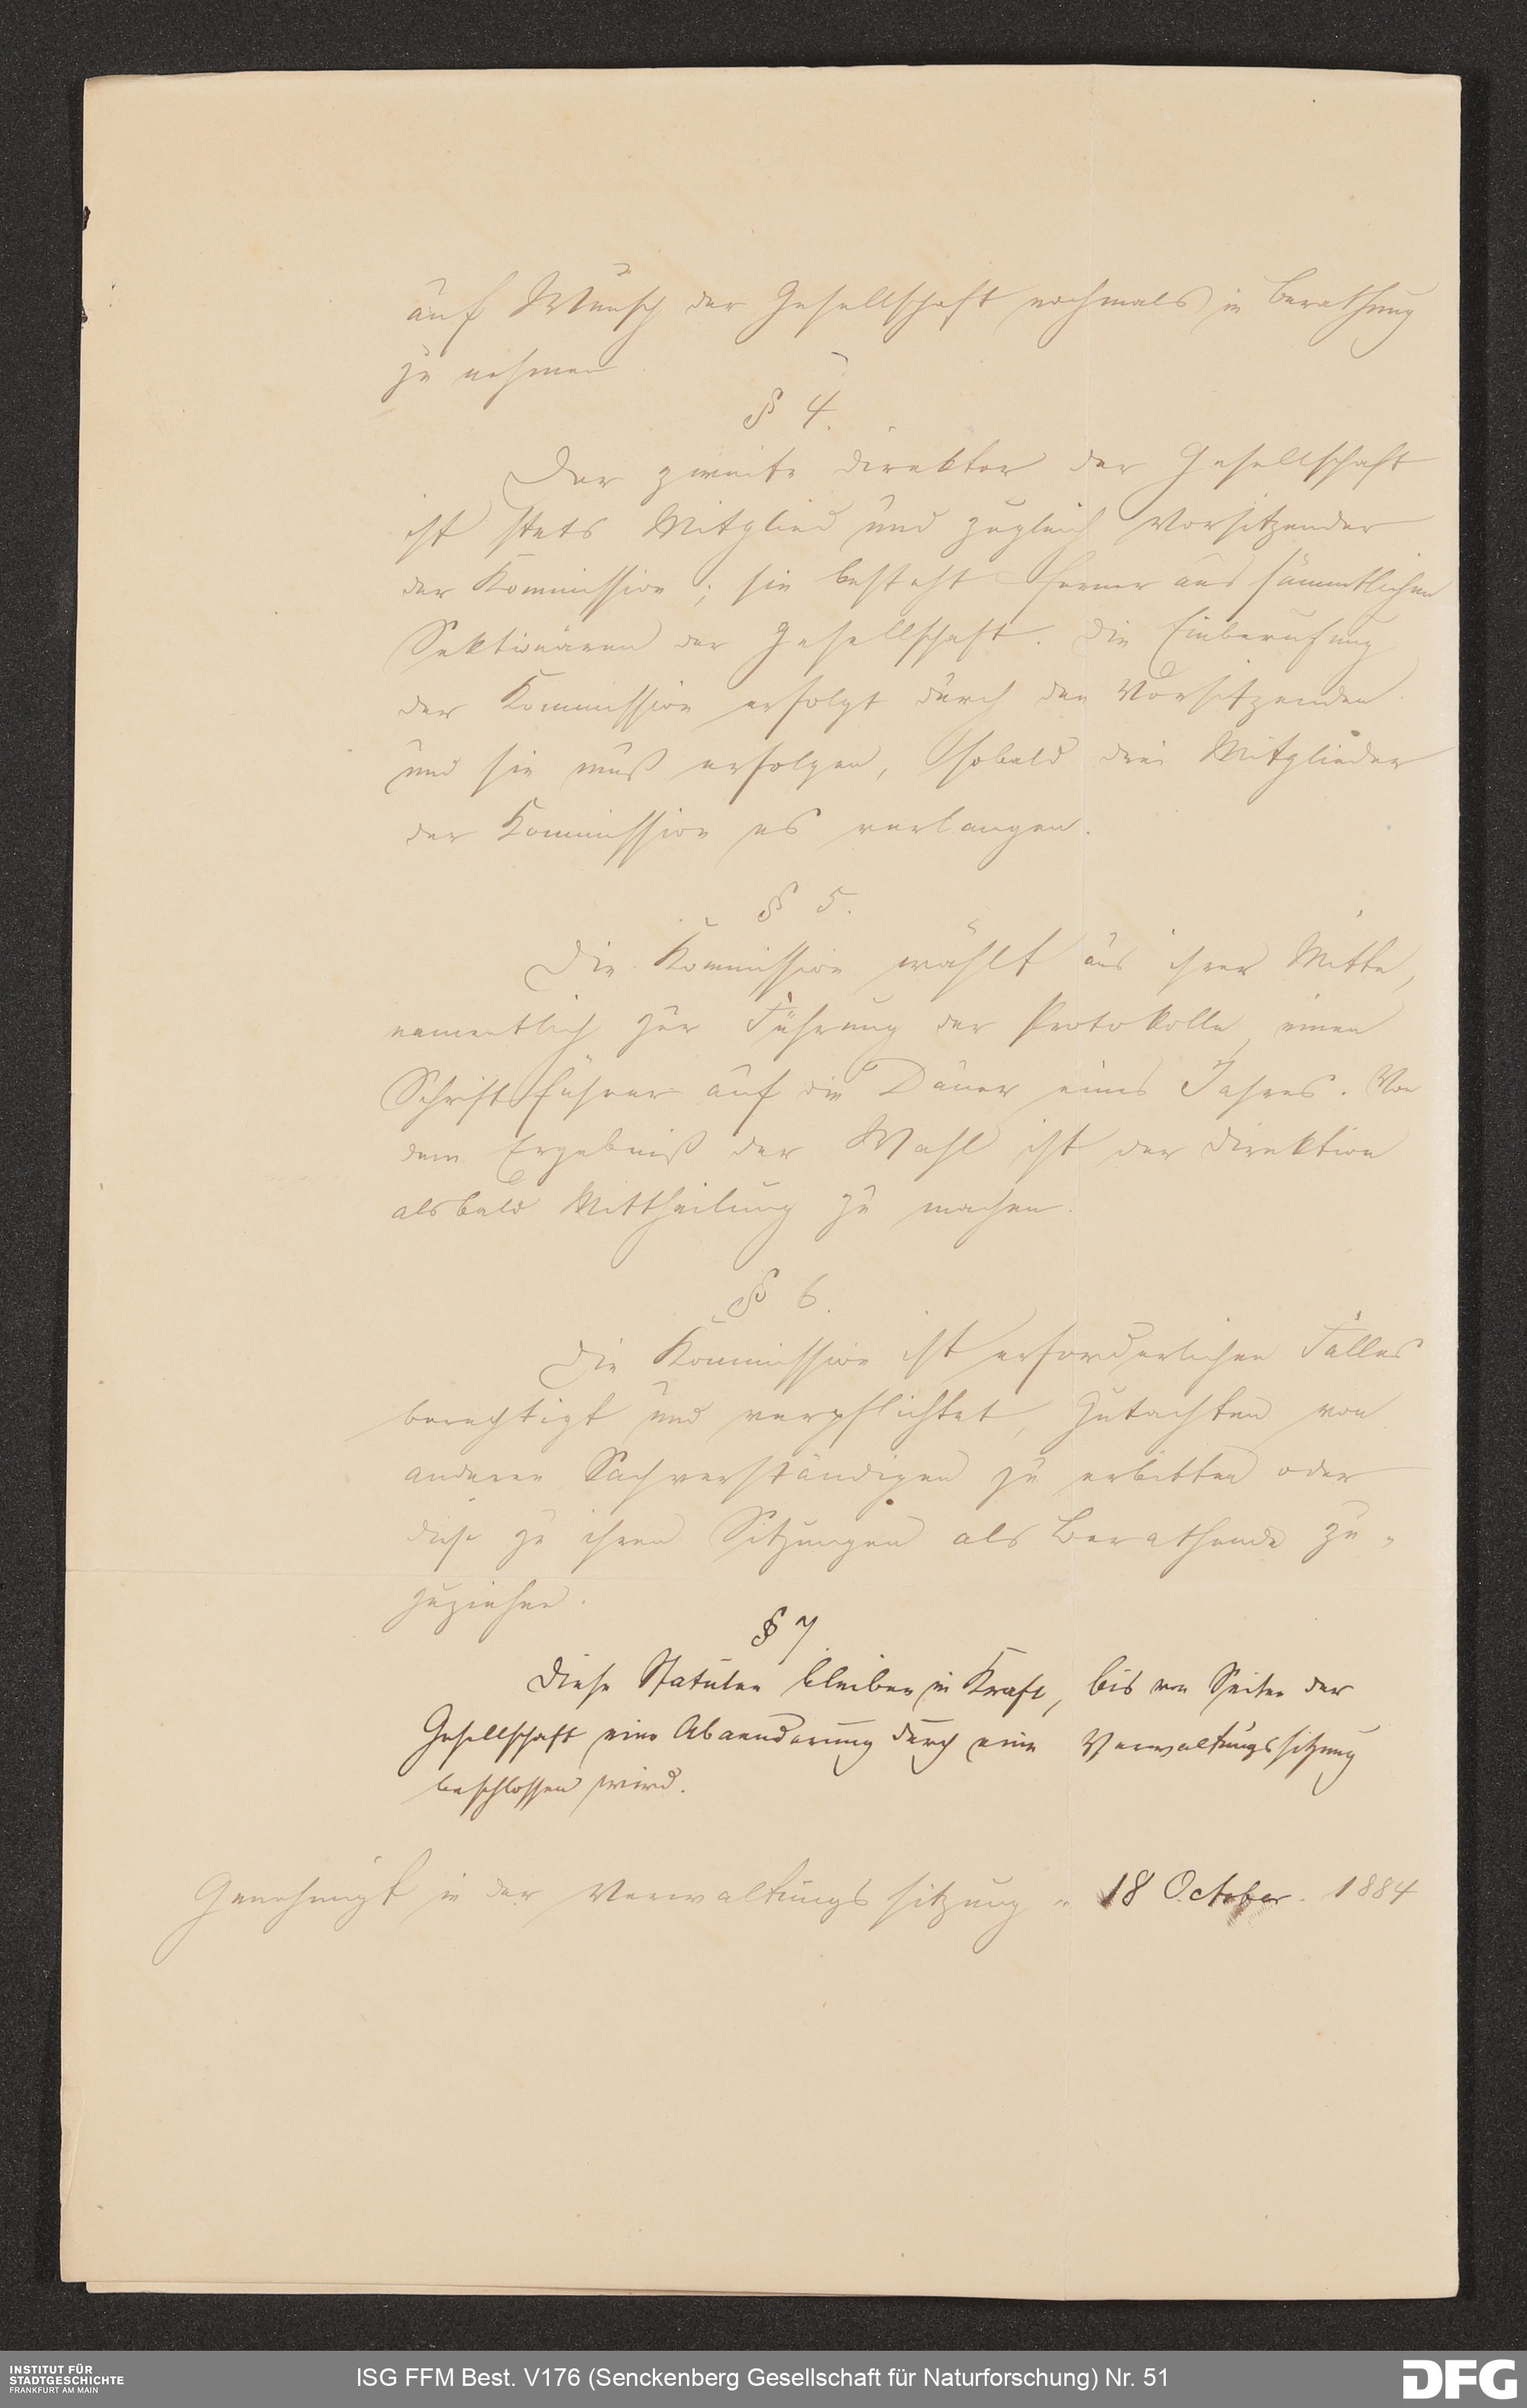 auf Wunsch der Gesellschaft nochmals in Berathung
zu nehmen
§ 4.
Der zweite Direktor der Gesellschaft
ist stets Mitglied und zugleich Vorsitzender
der Kommission; sie besteht ferner aus sämmtlichen
Sektionären der Gesellschaft. Die Einberufung
der Kommission erfolgt durch den Vorsitzenden
und sie muß erfolgen, sobald drei Mitglieder
der Kommission es verlangen.
§ 5.
Die Kommission wählt aus ihrer Mitte,
namentlich zur Führung der Protokolle, einen
Schriftführer auf die Dauer eines Jahres. Von
dem Ergebniß der Wahl ist der Direktion
alsbald Mittheilung zu machen.
§ 6.
Die Kommission ist erforderlichen Falles
berechtigt und verpflichtet, Gutachten von
anderen Sachverständigen zu erbitten oder
diese zu ihren Sitzungen als Berathende zu-
zuziehen.
§ 7
Diese Statuten bleiben in Kraft, bis von Seiten der
Gesellschaft eine Abaenderung durch eine Verwaltungssitzung
beschlossen wird.
Genehmigt in der Verwaltungssitzung 18 October. 1884
INSTITUT FÜR
STADTGESCHICHTE
FRANKFURT AM MAIN
ISG FFM Best. V176 (Senckenberg Gesellschaft für Naturforschung) Nr. 51
DFG